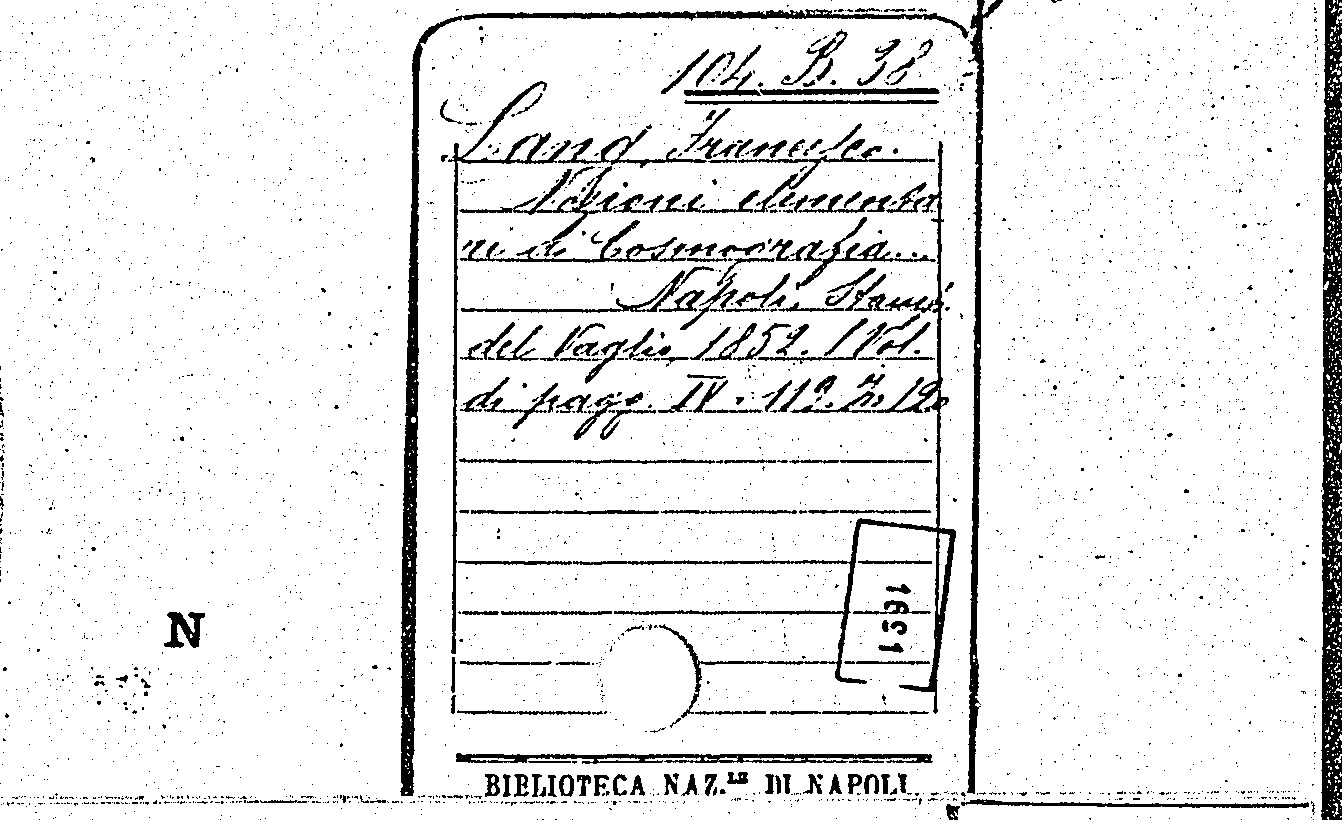 104. B. 38
Land, Francesco.
Nozioni elementa
ri di Cosmografia...
Napoli, Stamp.
del Vaglio, 1852. 1 Vol.
di pagg. IV - 112. In 12o
1631
N
BIBLIOTECA NAZ.LE DI NAPOLI